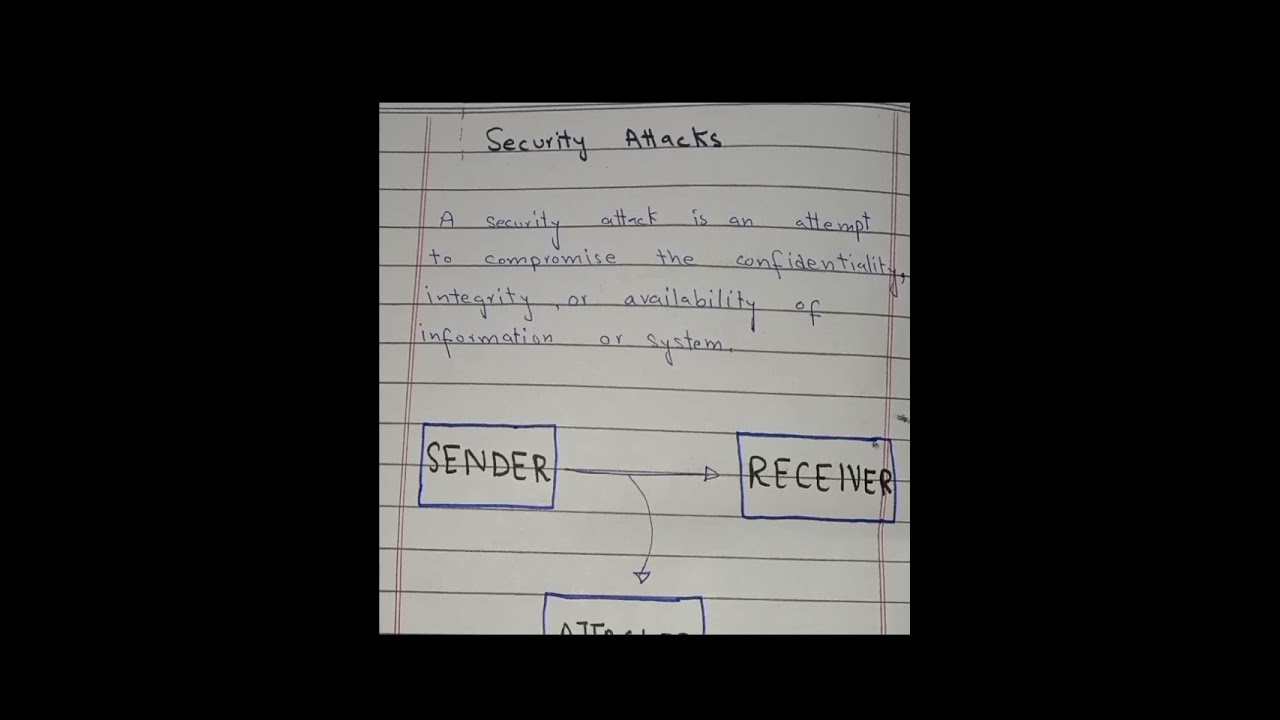 Security Attacks
A security attack is an attempt
to compromise the confidentiality,
integrity, or availability of
information or system.
SENDER
RECEIVER